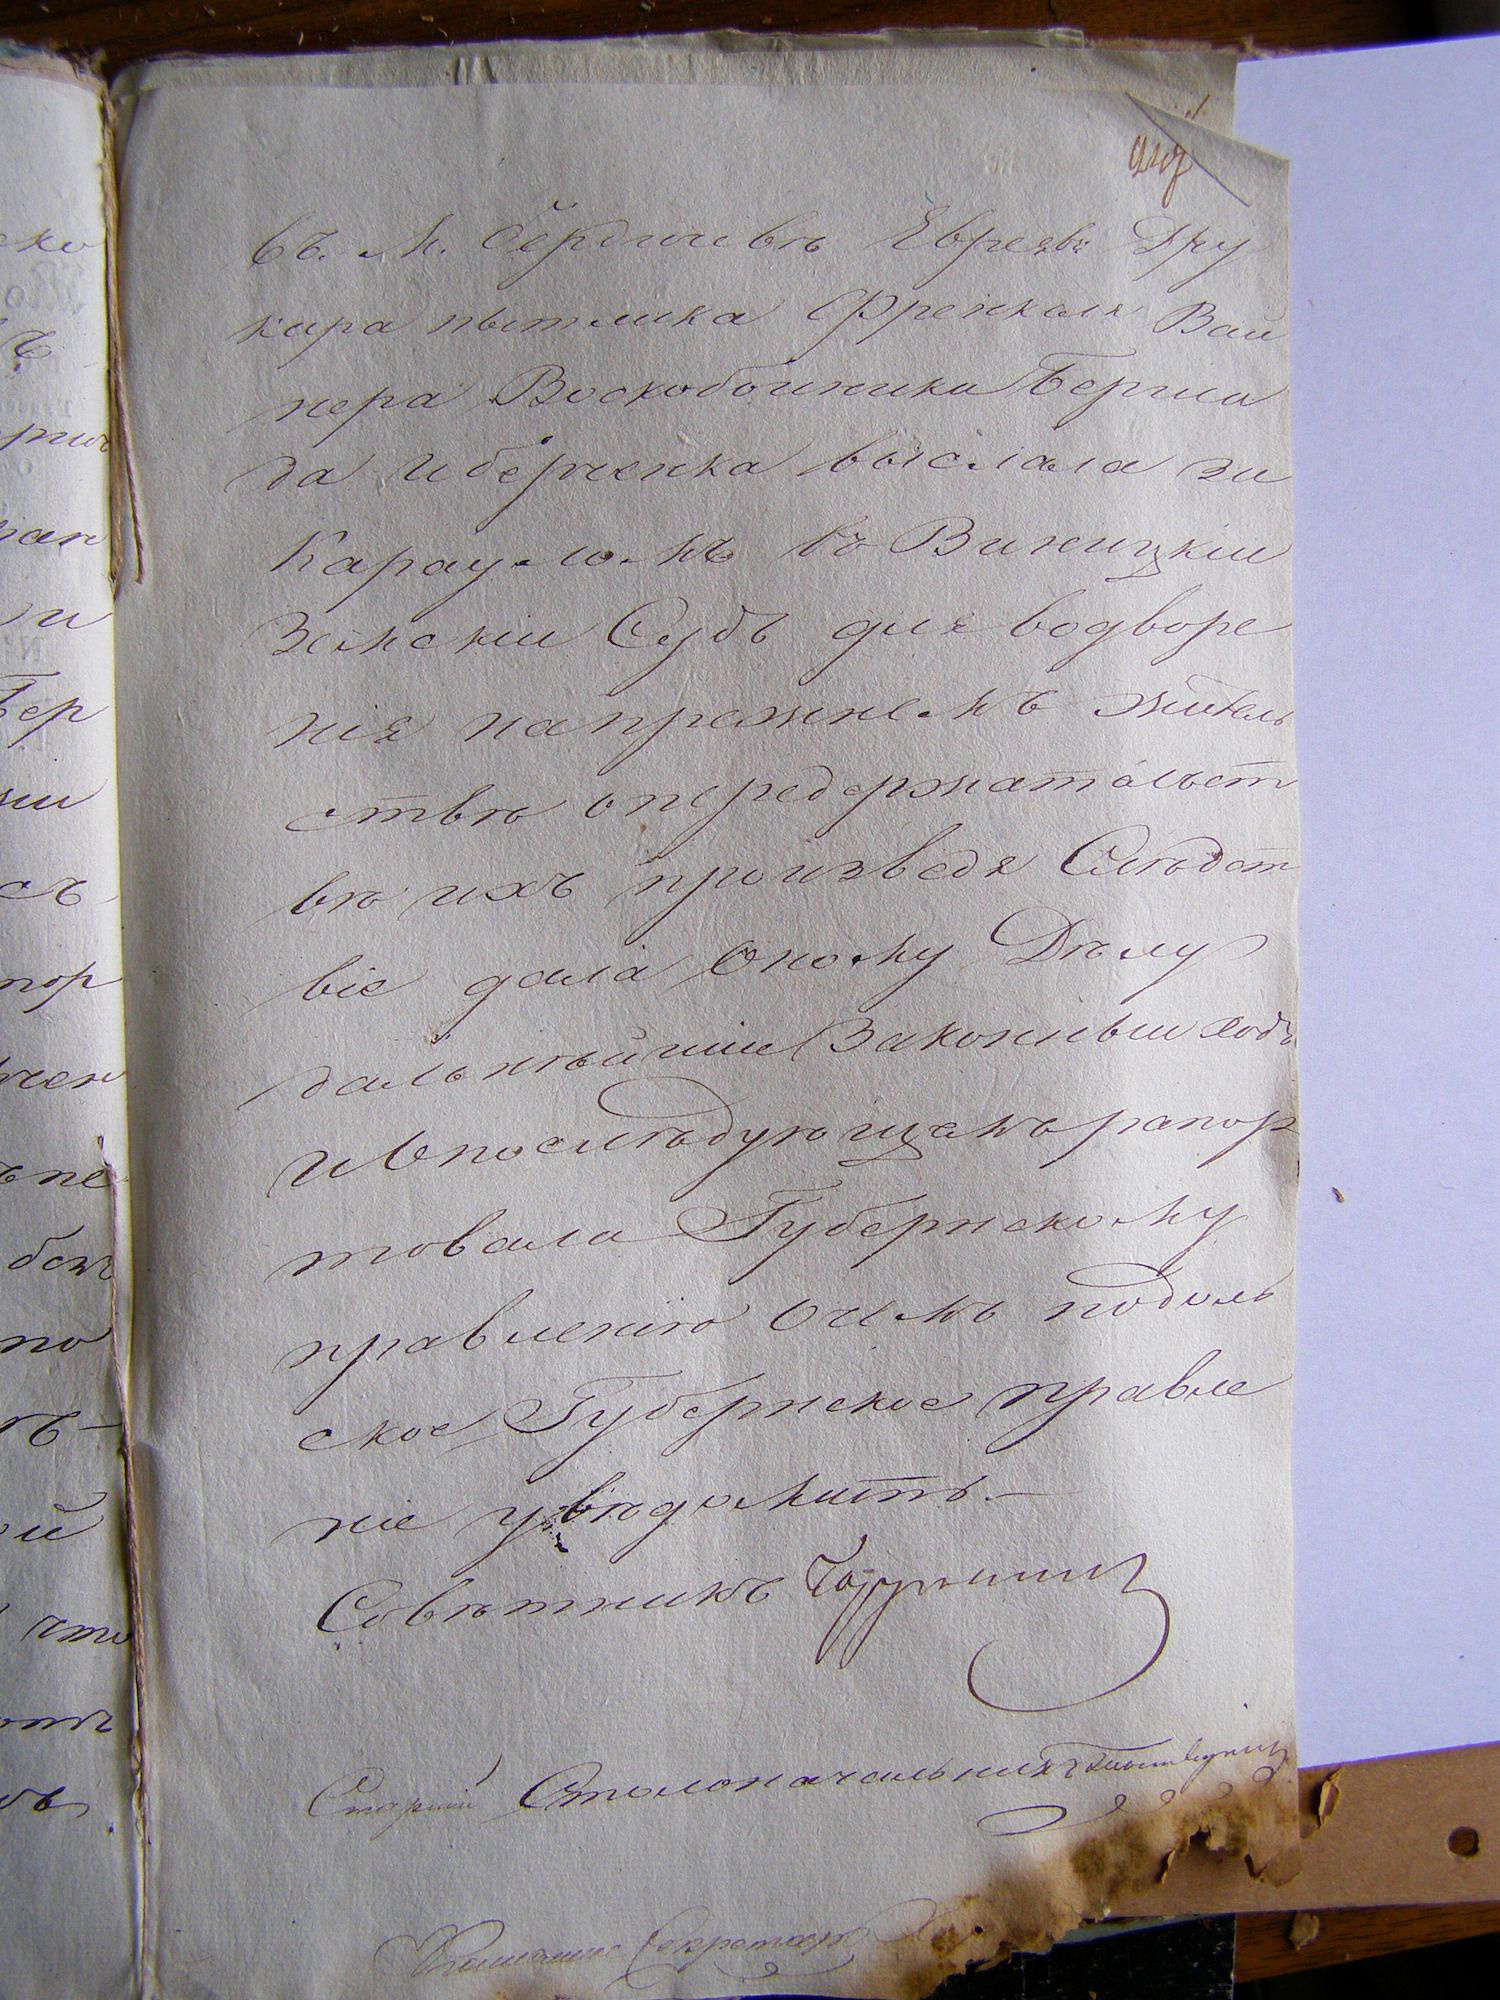 въ м. бердичевѣ Евреевъ Дру
кира пытлика Френкеля Вай
нера Воскобойника Берша
да и берченка выслала за
карауломъ въ Виницкій
Земскій Судъ для водворе
нія напрежнемъ житель
ствѣ опередержательст
вѣ ихъ произведя Слѣдст
віе дала Оному Дѣлу
дальнѣйшій Законный ходъ
и Опослѣдующемъ рапор
товала Губернскому
правленію Очемъ подоль
ское Губернское правле
ніе увѣдомить —
Совѣтникъ
Старшій Столоначальникъ
Секретарь